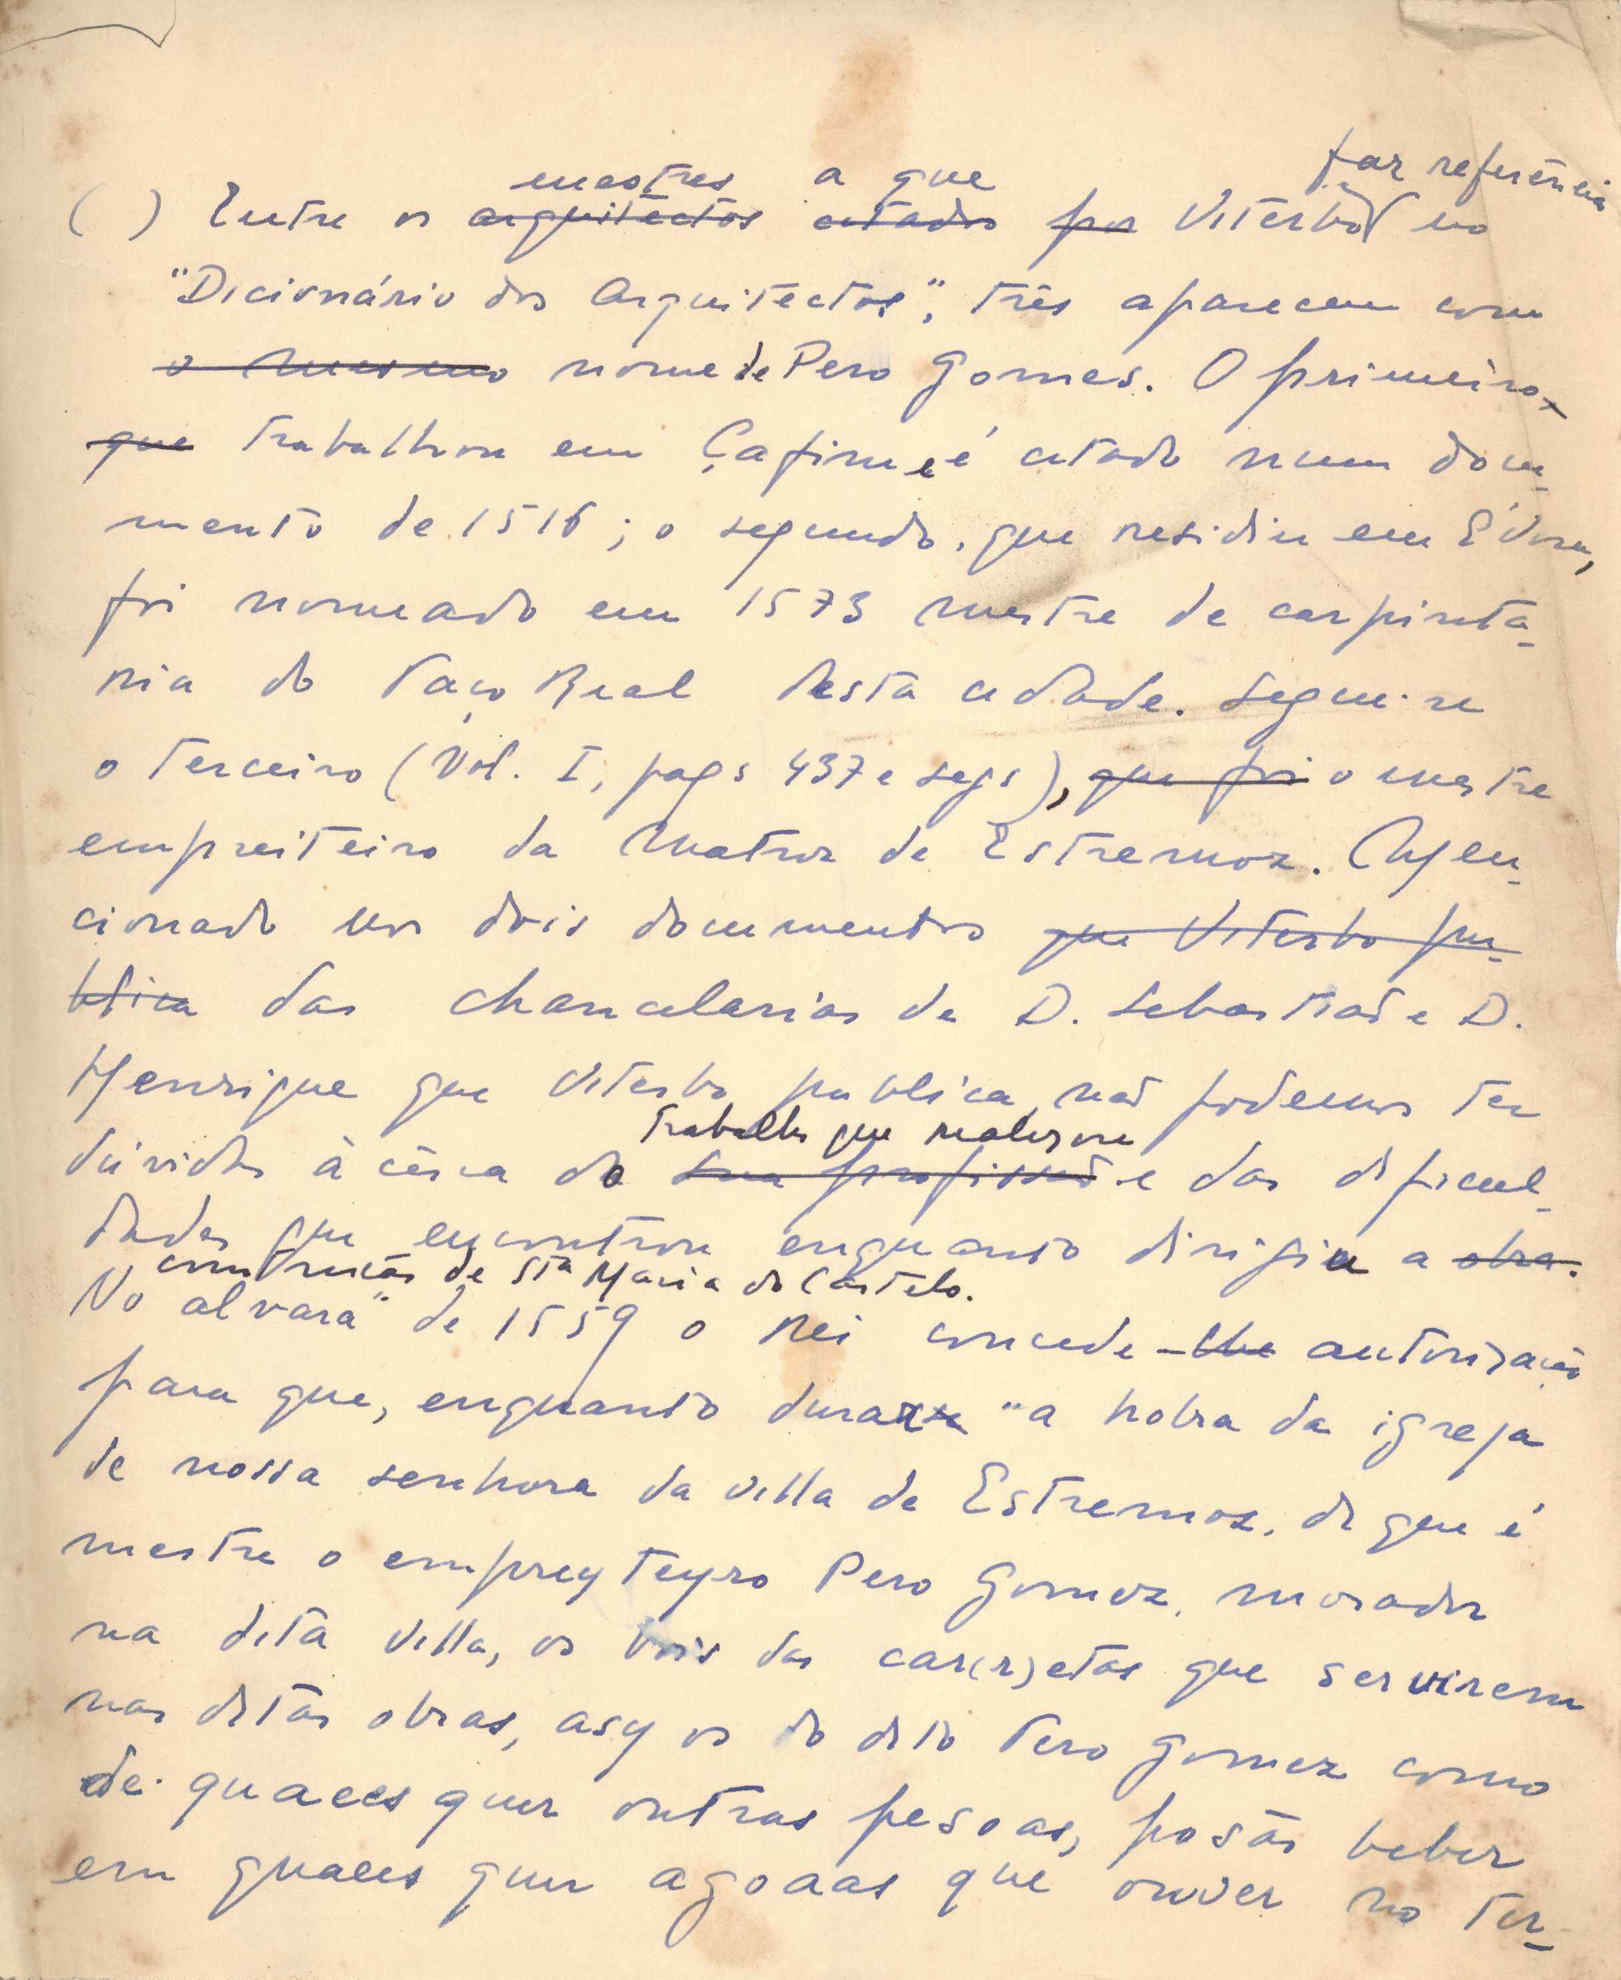 mestres a que faz referência
( ) Entre os arquitectos citados por Viterbo no
"Dicionário dos Arquitectos", três aparecem com
o mesmo nome de Pero Gomes. O primeiro,
que trabalhou em Çafim e é citado num docu-
mento de 1516; o segundo, que residiu em Évora,
foi nomeado em 1573 mestre de carpinta-
ria do Paço Real desta cidade. Segue-se
o terceiro (Vol. I, pags 437 e segs), que foi o mestre
empreiteiro da Matriz de Estremoz. Men-
cionado nos dois documentos que Viterbo pu-
blica das chancelarias de D. Sebastião e D.
Henrique que Viterbo publica, não podemos ter
trabalho que realizou
dúvidas à cêrca do sua profissão e das dificul-
dades que encontrou enquanto dirigiu a obra.
construção de Sta Maria do Castelo.
No alvará de 1559 o Rei concede-lhe autorização
para que, enquanto durar "a hobra da igreja
de nossa senhora da villa de Estremoz, de que é
mestre o empreyteyro Pero Gomez, morador
na dita villa, os bois das car(r)etas que servirem
nas ditas obras, asy os do dito Pero Gomez como
de quaees quer outras pesoas, posão beber
em quaees quer agoaas que ouver no ter-